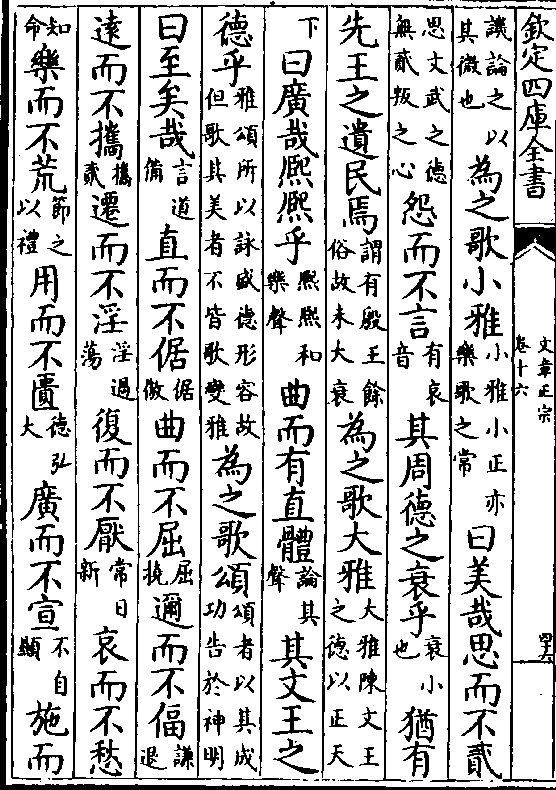 欽定四庫全書
文章正宗
卷十六
譏論之以其微也為之歌小雅小雅小正亦樂歌之常曰美哉思而不貳
思文武之德無貳叛之心怨而不言有哀音其周德之衰乎衰小也猶有
先王之遺民焉謂有殷王餘俗故未大衰為之歌大雅大雅陳文王之德以正天
下曰廣哉熈熈乎熈熈和樂聲曲而有直體論其聲其文王之
德乎雅頌所以詠盛德形容故但歌其美者不皆歌變雅為之歌頌頌者以其成功告於神明
曰至矣哉言道備直而不倨倨傲曲而不屈屈撓邇而不偪謙退
遠而不攜攜貳遷而不淫淫過蕩復而不厭常日新哀而不愁
知命樂而不荒節之以禮用而不匱德弘大廣而不宣不自顯施而